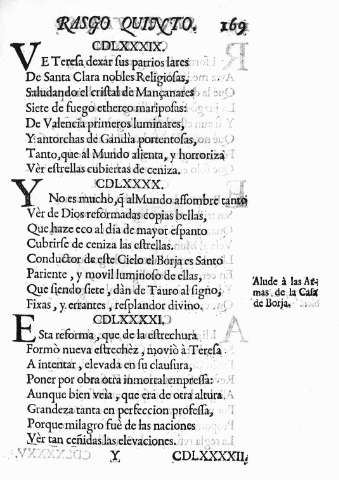 RASGO QUINTO. 169
CDLXXXIX.
VE Teresa dexar sus patrios lares
De Santa Clara nobles Religiosas,
Saludando el cristal de Mançanares
Siete de fuego ethereo mariposas:
De Valencia primeros luminares,
Y antorchas de Gandia portentosas,
Tanto, que al Mundo alienta, y horroriza
Vèr estrellas cubiertas de ceniza.
CDLXXXX.
Y No es mucho, q̃ al Mundo assombre tanto
Vèr de Dios reformadas copias bellas,
Que haze eco al dia de mayor espanto
Cubrirse de ceniza las estrellas.
Conductor de este Cielo el Borja es Santo
Pariente, y movil luminoso de ellas,
Que siendo siete, dàn de Tauro al signo,
Fixas, y errantes, resplandor divino.
Alude à las Armas
de la Casa
de Borja.
CDLXXXXI.
ESta reforma, que de la estrechura
Formò nueva estrechèz, moviò à Teresa
A intentar, elevada en su clausura,
Poner por obra otra inmortal empressa:
Aunque bien veìa, que era de otra altura
Grandeza tanta en perfeccion professa,
Porque milagro fuè de las naciones
Vèr tan ceñidas las elevaciones.
Y CDLXXXXII.